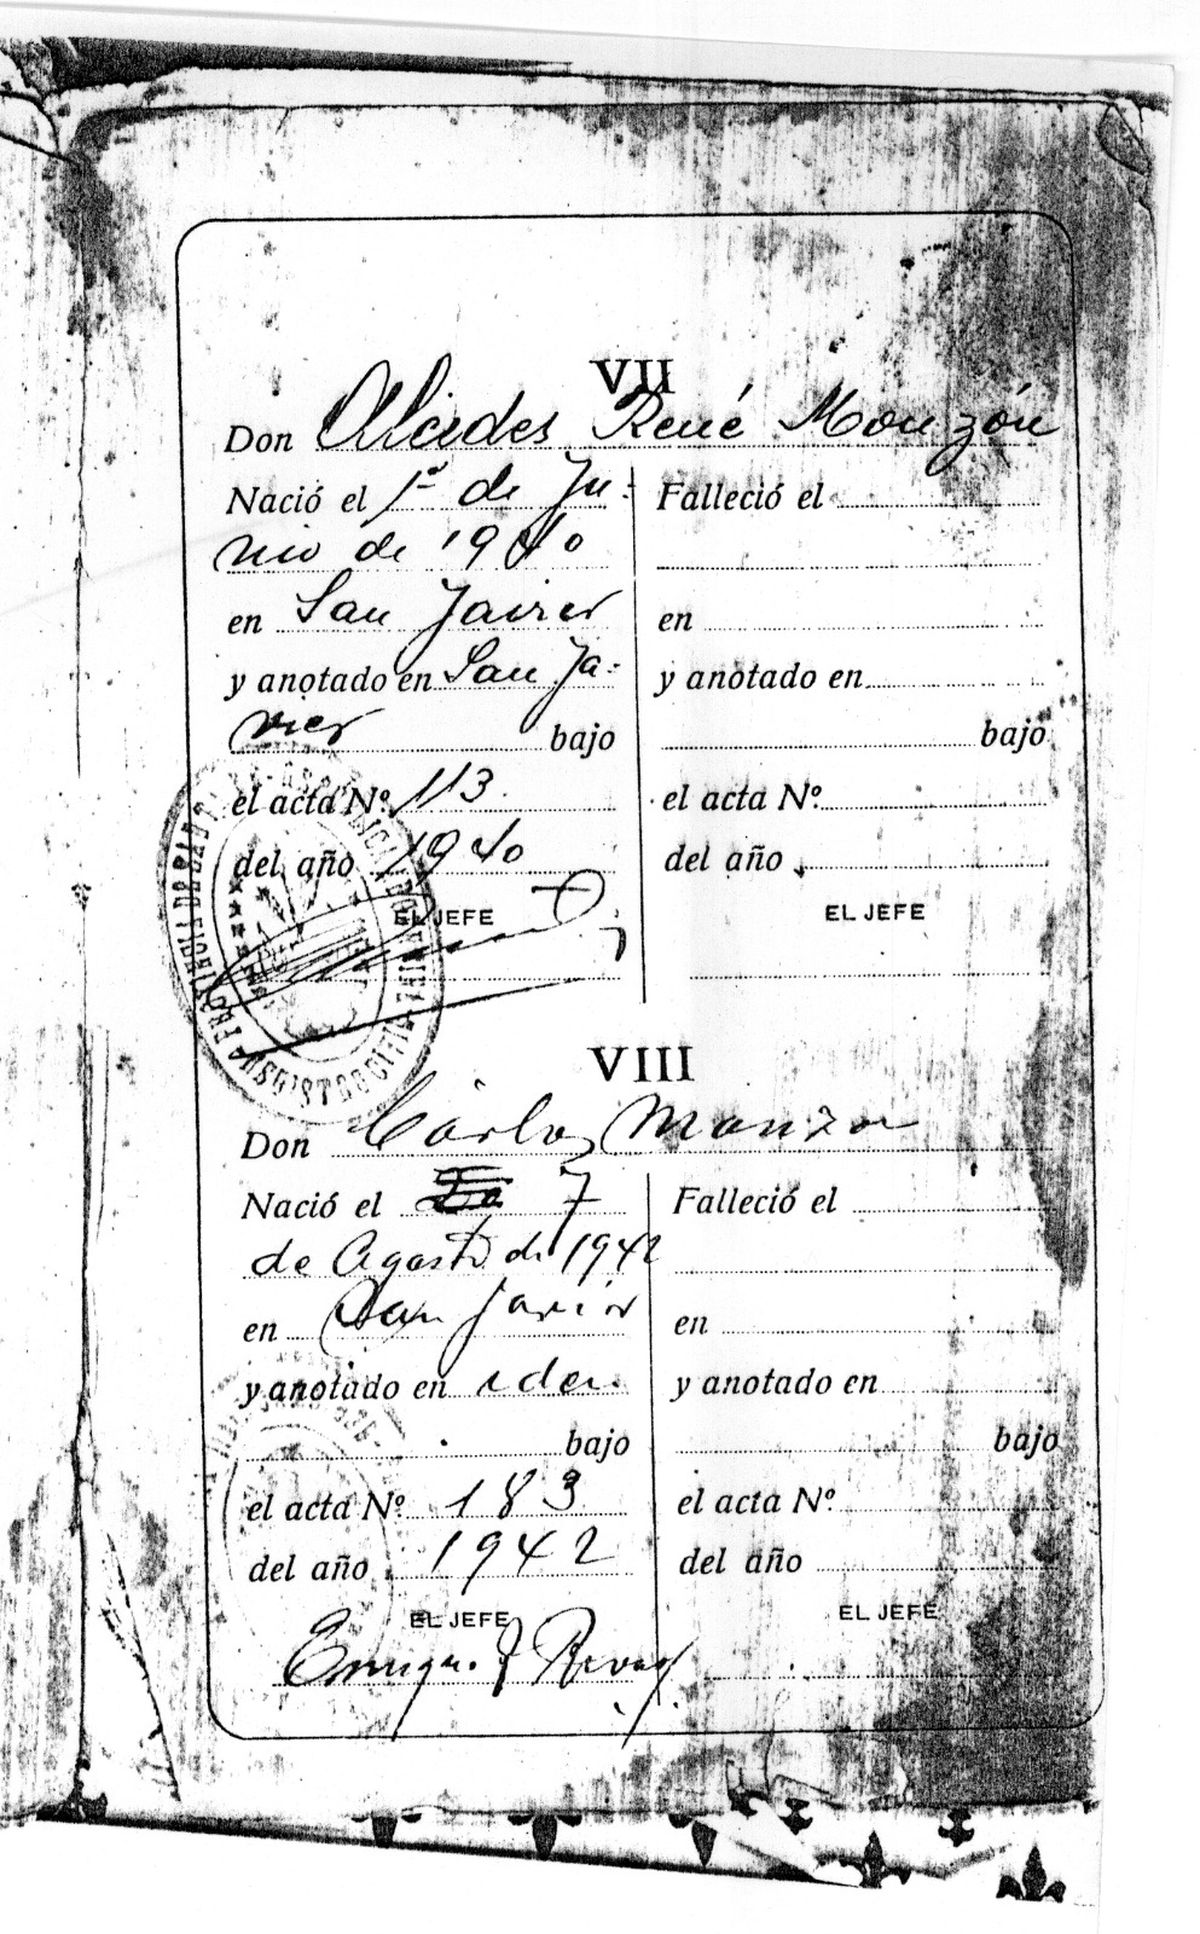 VII
Don Alcides René Monzón
Nació el 1º de Ju-
nio de 1940
en San Javier
y anotado en San Ja-
vier bajo
el acta Nº 113
del año 1940
EL JEFE
Falleció el
en
y anotado en
bajo
el acta Nº
del año
EL JEFE
PROVINCIA DE SANTA
REGISTRO CIVIL
VIII
Don Carlos Monzon
Nació el 7
de Agosto de 1942
en San Javier
y anotado en idem
bajo
el acta Nº 183
del año 1942
EL JEFE
Enrique
Falleció el
en
y anotado en
bajo
el acta Nº
del año
EL JEFE